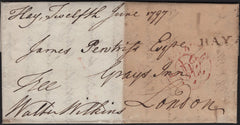 Hay, Twelfth June 1797
James Penthiss Esqre
HAY
Grays Inn
London
Free
Walter Wilkins